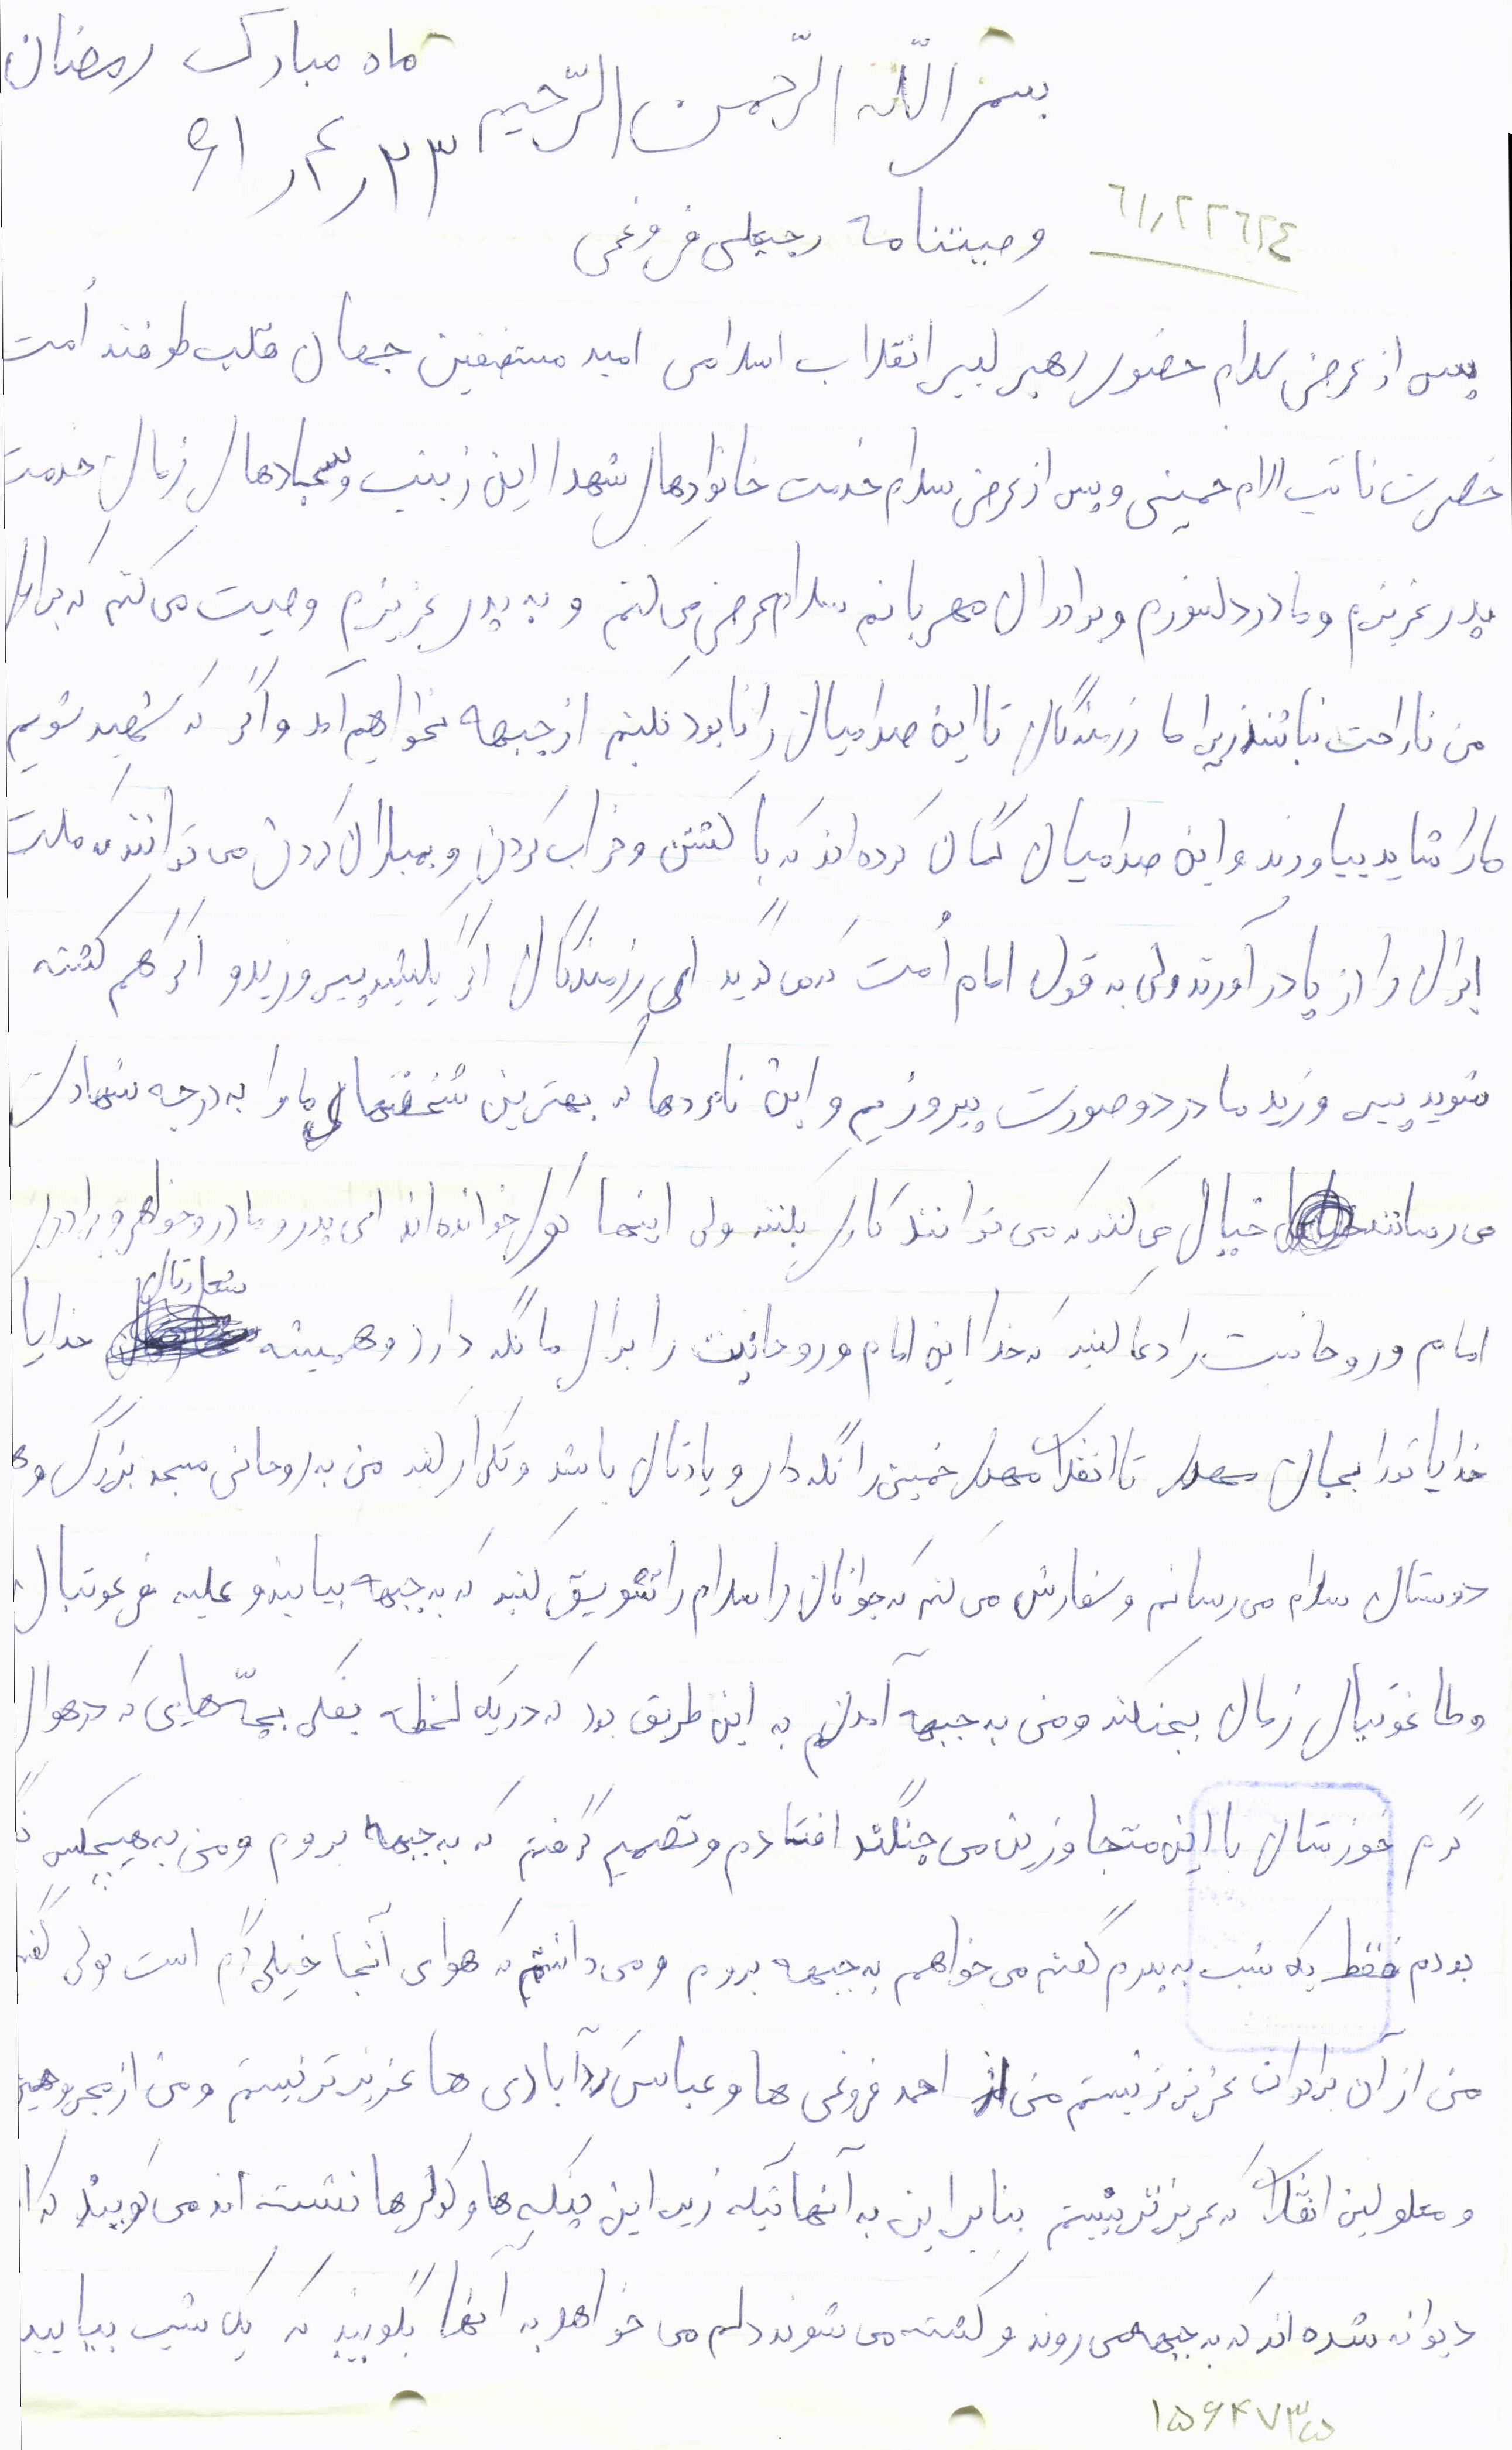 ماه مبارک رمضان
بسم اللّه الرّحمن الرّحیم
۶۱/۴/۲۳
۶۱/۲۲۶۲۴
وصیتنامه رجبعلی فروغی
پس از عرض سلام حضور رهبر کبیر انقلاب اسلامی امید مستضعفین جهان قلب طوفنده اُمت
حضرت نائب الامام خمینی و پس از عرض سلام خدمت خانوادهای شهدا این زینب و سجادهای زمان خدمت
پدر عزیزم و مادر دلسوزم و برادران مهربانم سلام عرض می کنم و به پدر عزیزم وصیت می کنم که برای
من ناراحت نباشند زیرا ما رزمندگان تا این صدامیان را نابود نکنیم از جبهه نخواهیم آمد و اگر که شهید شویم
ما را شاید بیاورند و این صدامیان گمان کرده اند که با کشتن و خراب کردن و بمباران کردن می توانند که ملت
ایران را از پا در آورند ولی به قول امام اُمت که می گوید ای رزمندگان اگر بکشید پیروزید و اگر هم کشته
شوید پیروزید ما در دو صورت پیروزیم و این نامردها که بهترین شخصتهای ما را به درجه شهادت
می رسانند خیال می کنند که می توانند کاری بکنند ولی اینها کور خوانده اند ای پدر و مادر و خواهر و برادر
امام و روحانیت را دعا کنید که خدا این امام و روحانیت را برای ما نگه دارد و همیشه شعارتان خدایا
خدایا تورا بجان مهدی تا انقلاب مهدی خمینی را نگه دار و یادتان باشد و تکرار کنید من به روحانی مسجد بزرگ و
دوستان سلام می رسانم و سفارش می کنم که جوانان را اسلام را تشویق کنید که به جبهه بیایند و علیه فرعونیان
و طاغوتیان زمان بجنگند و من به جبهه آمدنم به این طریق بود که در یک لحظه بفکر بچّه هایی که در هوای
گرم خوزستان با این متجاوزین می جنگند افتادم و تصمیم گرفتم که به جبهه بروم و من به هیچکس
بودم فقط یک شب به پدرم گفتم می خواهم به جبهه بروم و می دانستم که هوای آنجا خیلی گرم است ولی گفتم
من از آن برادران عزیزتر نیستم من از احمد فروغی ها و عباس کردآبادی ها عزیزتر نیستم و من از مجروحین
و معلولین انقلاب که عزیزتر نیستم بنابراین به آنهائیکه زیر این پنکه ها و کولرها نشسته اند می گویند که
دیوانه شده اند که به جبهه می روند و کشته می شوند دلم می خواهد به آنها بگویید که یک شب بیایید
۱۵۶۴۷۳۵